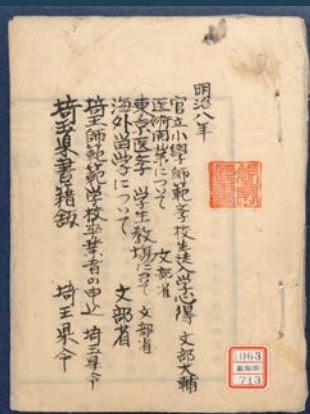 明治八年
官立小學師範学校生徒入学心得 文部大輔
医術開業について 文部省
東京医学 学生教場について 文部省
海外留学について 文部省
埼玉師範学校卒業者の申止 埼玉県令
埼玉県書籍館 埼玉県令
1063
713